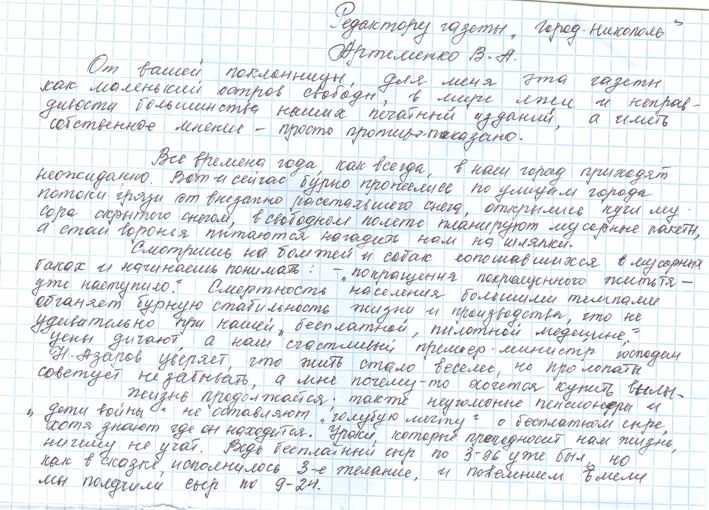 Редактору газеты „Город-Никополь"
Артеменко В.А.
От вашей поклонницы, для меня эта газеты
как маленький остров свободы, в мире лжи и неправ-
дивости большинства наших печатный изданий, а иметь
собственное мнение – просто противопоказано.
Все времена года, как всегда, в наш город приходят
неожиданно. Вот и сейчас бурно пронеслись по улицам города
потоки грязи от внезапно растаявшего снега, открылись кучи му-
сора скрытого снегом, в свободном полете планируют мусорные пакеты,
а стаи воронья пытаются нагадить нам на шляпки.
Смотришь на бомжей и собак копошавшихся в мусорных
баках и начинаешь понимать: – „покращення
уже наступило." Смертность населения большими темпами
обгоняет бурную стабильность жизни и производства, что не
удивительно при нашей „бесплатной, пилотной медицине,"
цены дичают, а наш счастливый премьер-министр господин
Н. Азаров уверяет, что жить стало веселее, но про лопаты
советует не забывать, а мне почему-то хочется купить вилы.
Жизнь продолжается: также неугомоные пенсионеры и
„дети войны" не оставляют „голубую мечту" о бесплатном сыре,
хотя знают где он находится. Уроки, которые преподносит нам жизнь,
ничему не учат. Ведь бесплатный сыр по 3-96 уже был, но
как в сказке, исполнилось 3-е желание, и повелением Емели
мы получили сыр по 9-24.